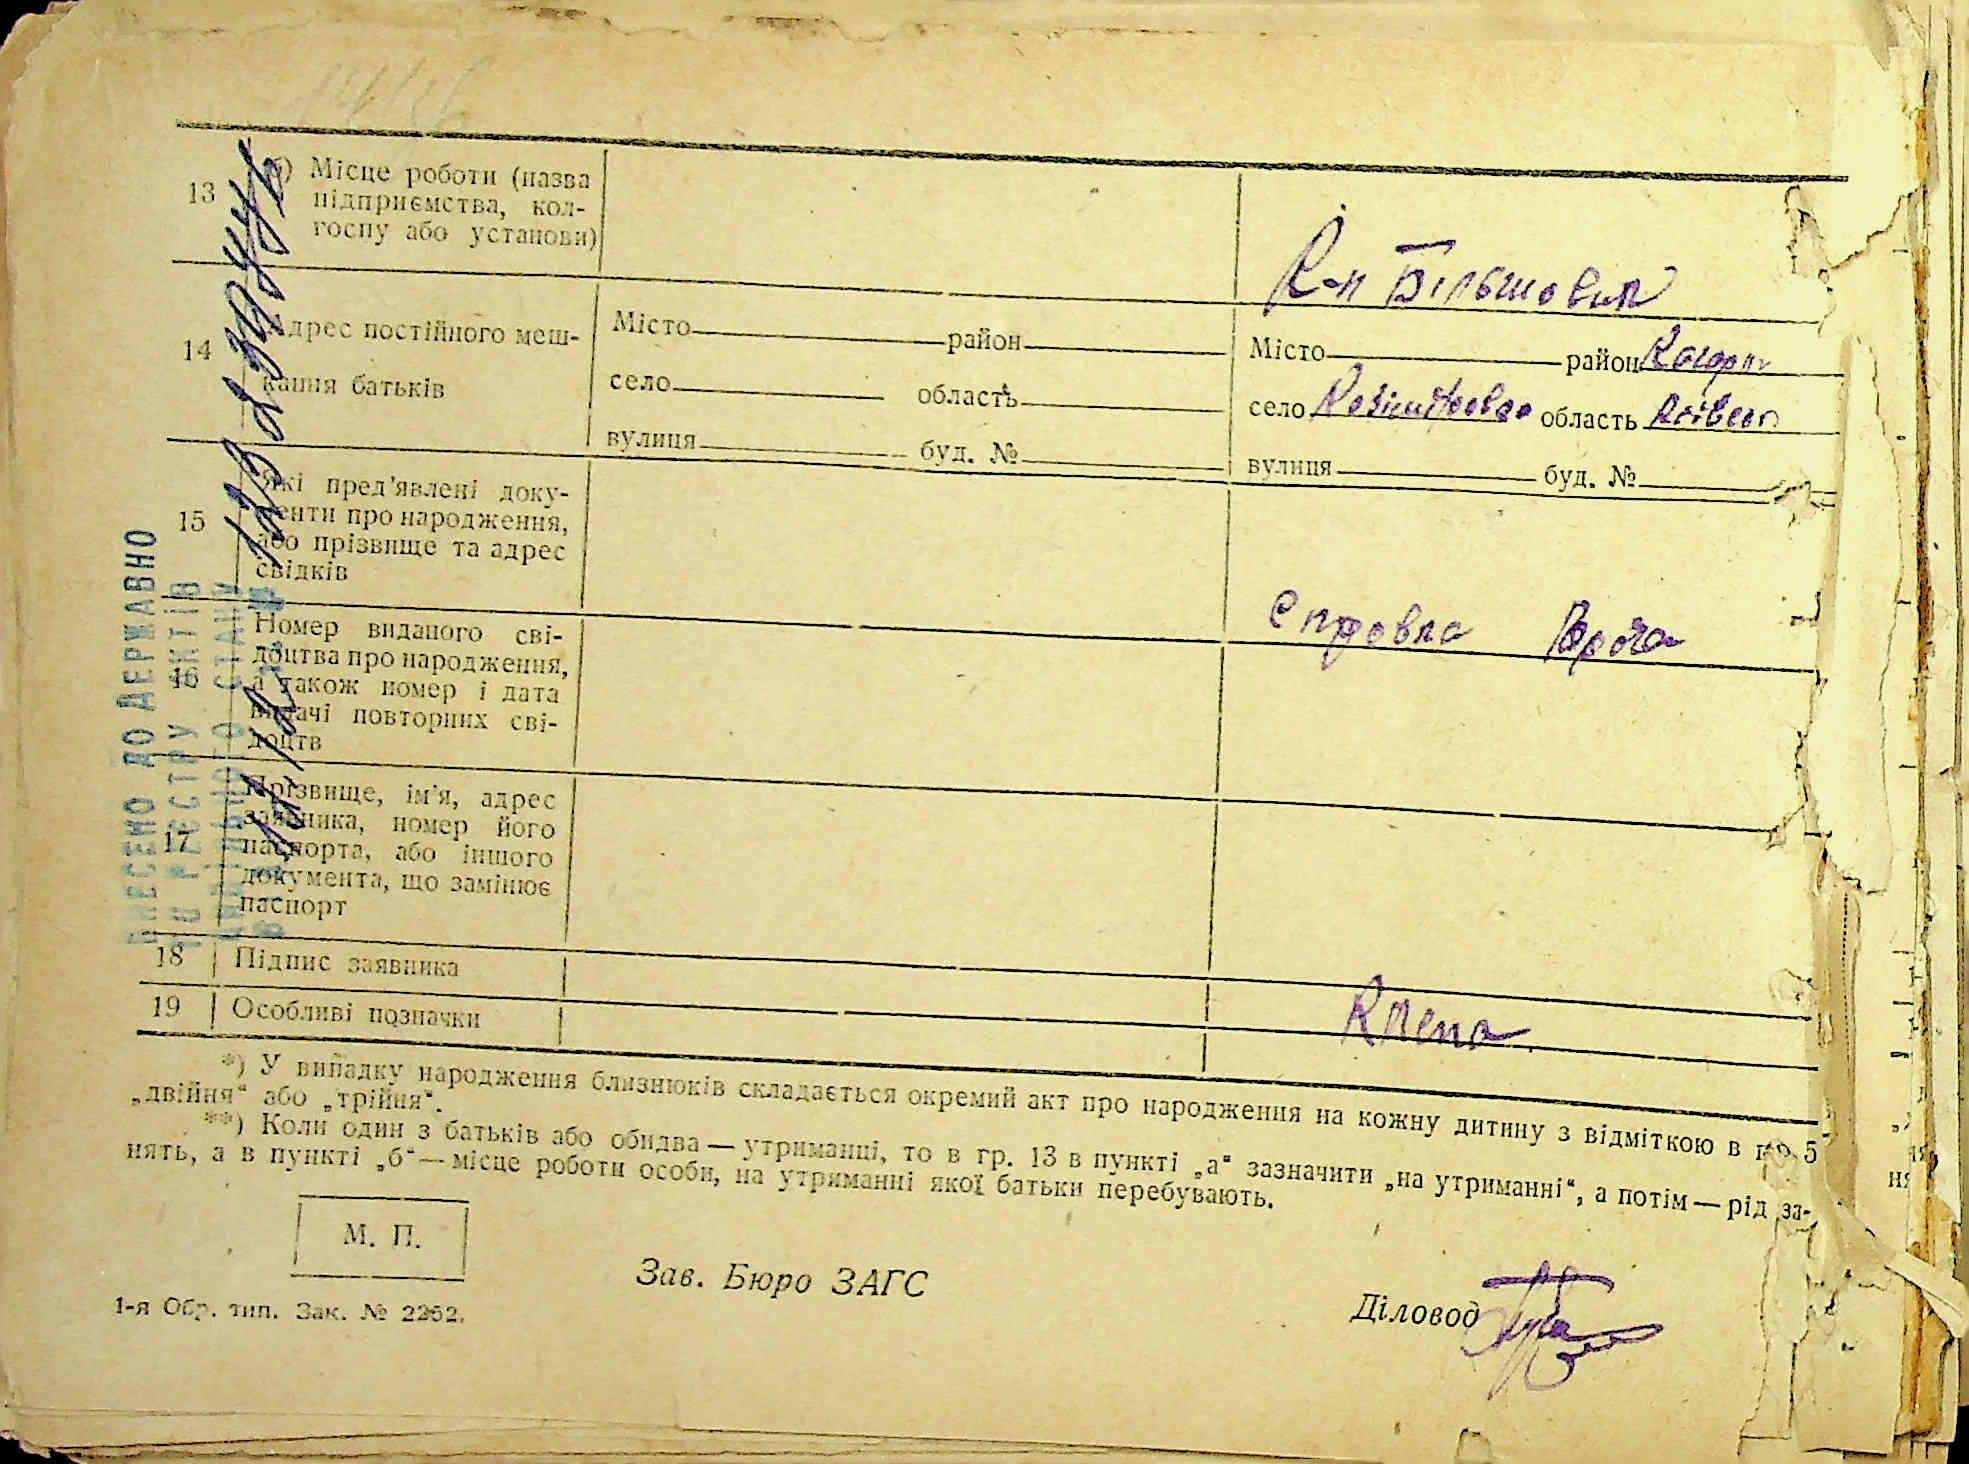 13 б) Місце роботи (назва
підприємства, кол-
госпу або установи)
К-п Більшовик
14 Адрес постійного меш-
кання батьків
Місто район
село область
вулиця буд. №
Місто район
село область
вулиця буд. №
15 Які пред'явлені доку-
менти про народження,
або прізвище та адрес
свідків
16 Номер виданого сві-
доцтва про народження,
а також номер і дата
видачі повторних сві-
доцтв
17 Прізвище, ім'я, адрес
заявника, номер його
паспорта, або іншого
документа, що замінює
паспорт
18 Підпис заявника
19 Особливі позначки
ВНЕСЕНО ДО ДЕРЖАВНО
ГО РЕЄСТРУ АКТІВ
*) У випадку народження близнюків складається окремий акт про народження на кожну дитину з відміткою в гр. 5
„двійня“ або „трійня“.
**) Коли один з батьків або обидва — утриманці, то в гр. 13 в пункті „а“ зазначити „на утриманні“, а потім — рід за-
нять, а в пункті „б“ — місце роботи особи, на утриманні якої батьки перебувають.
М. П.
Зав. Бюро ЗАГС
Діловод
1-я Обр. тип. Зак. № 2252.